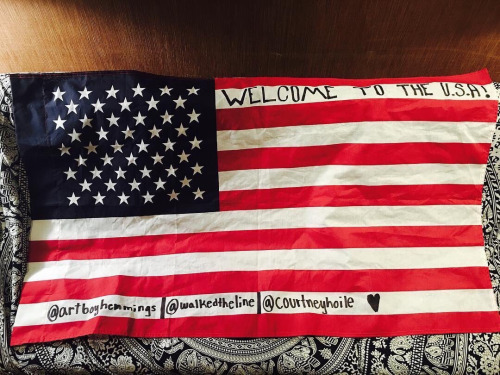 WELCOME TO THE U.S.A!
@artboyhemmings | @walkedtheline | @courtneyhoile ♥